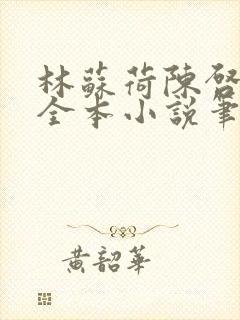 林蘇荷陳啓
全本小說筆
黃韶華